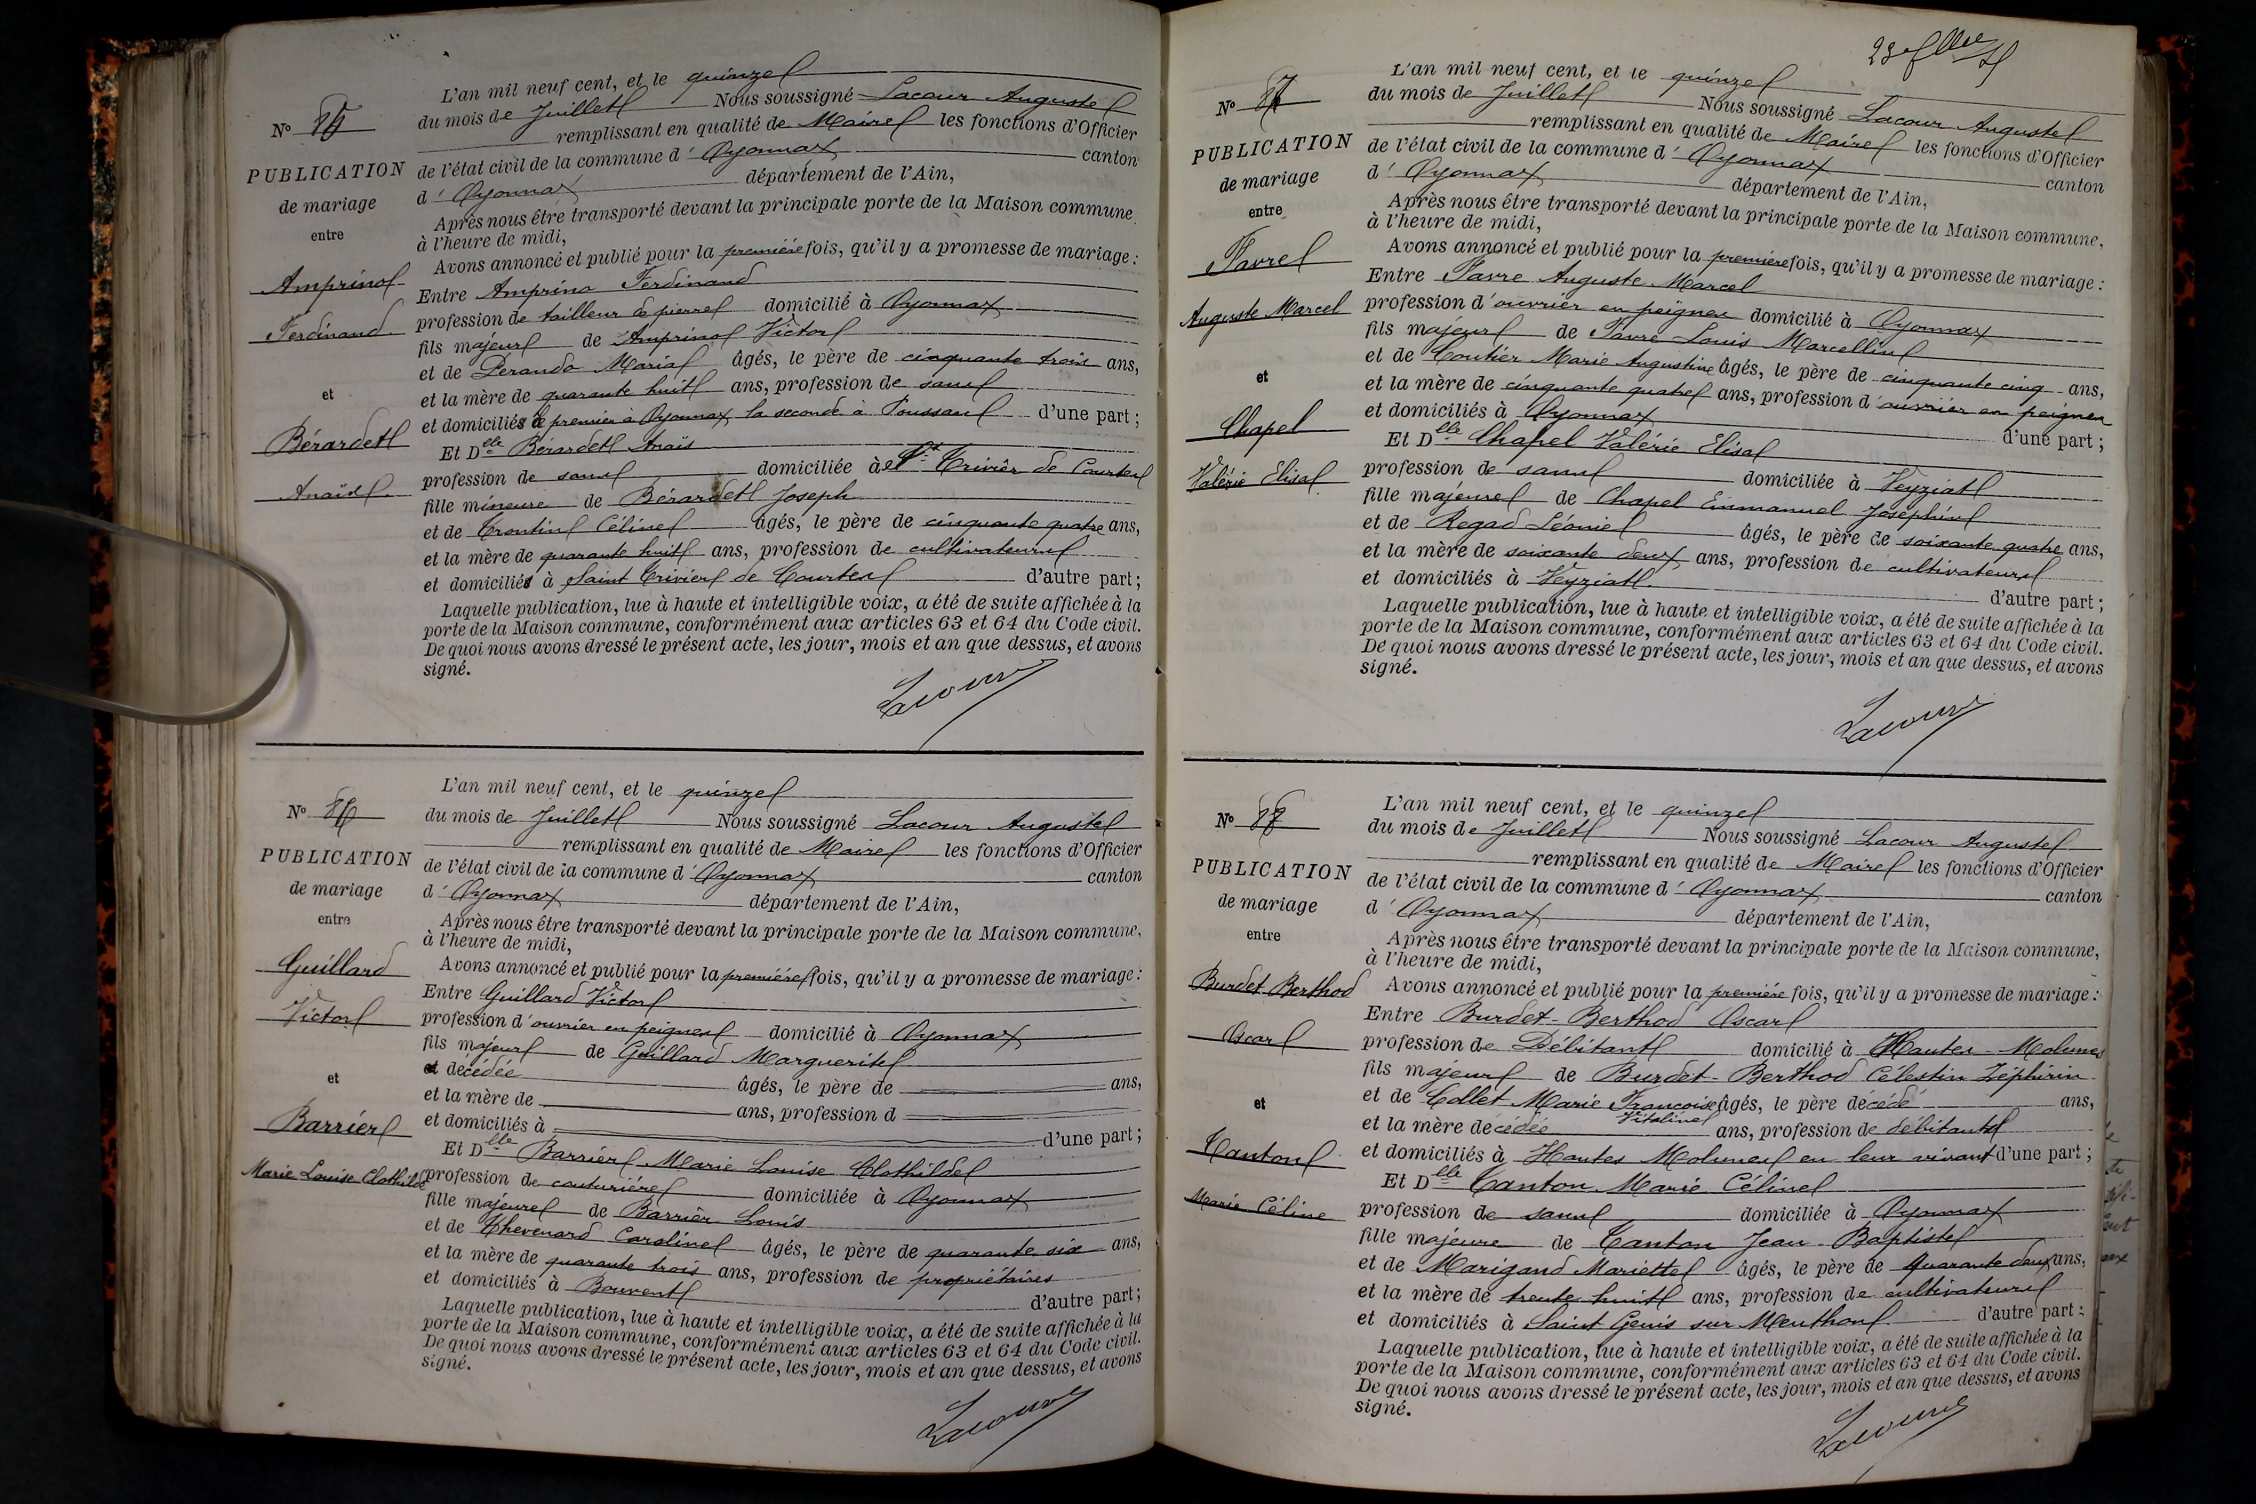 L'an mil neuf cent, et le quinze
du mois de Juillet Nous soussigné Lacour Auguste
remplissant en qualité de Maire les fonctions d'Officier
de l'état civil de la commune d' Oyonnax canton
d' Oyonnax département de l'Ain,
Après nous être transporté devant la principale porte de la Maison commune
à l'heure de midi,
Avons annoncé et publié pour la première fois, qu'il y a promesse de mariage :
Entre Amprino Ferdinand
profession de tailleur de pierre domicilié à Oyonnax
fils majeur de Amprino Victor
et de Perando Maria âgés, le père de cinquante trois ans,
et la mère de quarante huit ans, profession de sans
et domiciliés le premier à Oyonnax, la seconde à d'une part ;
Et Dlle Bérardet Anaïs
profession de sans domiciliée à St Trivier de Courtes
fille mineure de Bérardet Joseph
et de Trontin Céline âgés, le père de cinquante quatre ans,
et la mère de quarante huit ans, profession de cultivateurs
et domiciliés à Saint Trivier de Courtes d'autre part ;
Laquelle publication, lue à haute et intelligible voix, a été de suite affichée à la
porte de la Maison commune, conformément aux articles 63 et 64 du Code civil.
De quoi nous avons dressé le présent acte, les jour, mois et an que dessus, et avons
signé.
Lacour
N° 85
PUBLICATION
de mariage
entre
Amprino
Ferdinand
et
Bérardet
Anaïs
L'an mil neuf cent, et le quinze
du mois de Juillet Nous soussigné Lacour Auguste
remplissant en qualité de Maire les fonctions d'Officier
de l'état civil de la commune d' Oyonnax canton
d' Oyonnax département de l'Ain,
Après nous être transporté devant la principale porte de la Maison commune,
à l'heure de midi,
Avons annoncé et publié pour la première fois, qu'il y a promesse de mariage :
Entre Guillard Victor
profession d'ouvrier en peignes domicilié à Oyonnax
fils majeur de Guillard Marguerite
et décédée âgés, le père de ans,
et la mère de ans, profession d
et domiciliés à d'une part ;
Et Dlle Barrier Marie Louise Clothilde
profession de couturière domiciliée à Oyonnax
fille majeure de Barrier Louis
et de Thevenard Caroline âgés, le père de quarante six ans,
et la mère de quarante trois ans, profession de propriétaires
et domiciliés à Bouvent d'autre part ;
Laquelle publication, lue à haute et intelligible voix, a été de suite affichée à la
porte de la Maison commune, conformément aux articles 63 et 64 du Code civil.
De quoi nous avons dressé le présent acte, les jour, mois et an que dessus, et avons
signé.
Lacour
N° 86
PUBLICATION
de mariage
entre
Guillard
Victor
et
Barrier
Marie Louise Clothilde
L'an mil neuf cent, et le quinze
du mois de Juillet Nous soussigné Lacour Auguste
remplissant en qualité de Maire les fonctions d'Officier
de l'état civil de la commune d' Oyonnax canton
d' Oyonnax département de l'Ain,
Après nous être transporté devant la principale porte de la Maison commune,
à l'heure de midi,
Avons annoncé et publié pour la première fois, qu'il y a promesse de mariage :
Entre Favre Auguste Marcel
profession d'ouvrier en peignes domicilié à Oyonnax
fils majeur de Favre Louis Marcellin
et de Coutier Marie Augustine âgés, le père de cinquante cinq ans,
et la mère de cinquante quatre ans, profession d'ouvrier en peignes
et domiciliés à Oyonnax d'une part ;
Et Dlle Chapel Valérie Elisa
profession de sans domiciliée à Veyziat
fille majeure de Chapel Emmanuel Joséphin
et de Regad Léonie âgés, le père de soixante quatre ans,
et la mère de soixante deux ans, profession de cultivateurs
et domiciliés à Veyziat d'autre part ;
Laquelle publication, lue à haute et intelligible voix, a été de suite affichée à la
porte de la Maison commune, conformément aux articles 63 et 64 du Code civil.
De quoi nous avons dressé le présent acte, les jour, mois et an que dessus, et avons
signé.
Lacour
N° 87
PUBLICATION
de mariage
entre
Favre
Auguste Marcel
et
Chapel
Valérie Elisa
L'an mil neuf cent, et le quinze
du mois de Juillet Nous soussigné Lacour Auguste
remplissant en qualité de Maire les fonctions d'Officier
de l'état civil de la commune d' Oyonnax canton
d' Oyonnax département de l'Ain,
Après nous être transporté devant la principale porte de la Maison commune,
à l'heure de midi,
Avons annoncé et publié pour la première fois, qu'il y a promesse de mariage :
Entre Burdet-Berthod Oscar
profession de Débitant domicilié à Hautes-Molunes
fils majeur de Burdet-Berthod Célestin Zéphirin
et de Collet Marie Françoise Vitaline âgés, le père décédé ans,
et la mère décédée ans, profession de débitants
et domiciliés à Hautes Molunes en leur vivant d'une part ;
Et Dlle Tanton Marie Céline
profession de sans domiciliée à Oyonnax
fille majeure de Tanton Jean-Baptiste
et de Marigand Mariette âgés, le père de quarante deux ans,
et la mère de trente huit ans, profession de cultivateurs
et domiciliés à Saint Genis sur Menthon d'autre part ;
Laquelle publication, lue à haute et intelligible voix, a été de suite affichée à la
porte de la Maison commune, conformément aux articles 63 et 64 du Code civil.
De quoi nous avons dressé le présent acte, les jour, mois et an que dessus, et avons
signé.
Lacour
N° 88
PUBLICATION
de mariage
entre
Burdet Berthod
Oscar
et
Tanton
Marie Céline